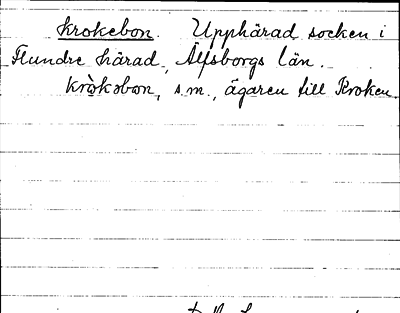 Krokebon. Upphärad socken i
Flundre härad, Älfsborgs län.
kròkobon, s.m., ägaren till Kroken.